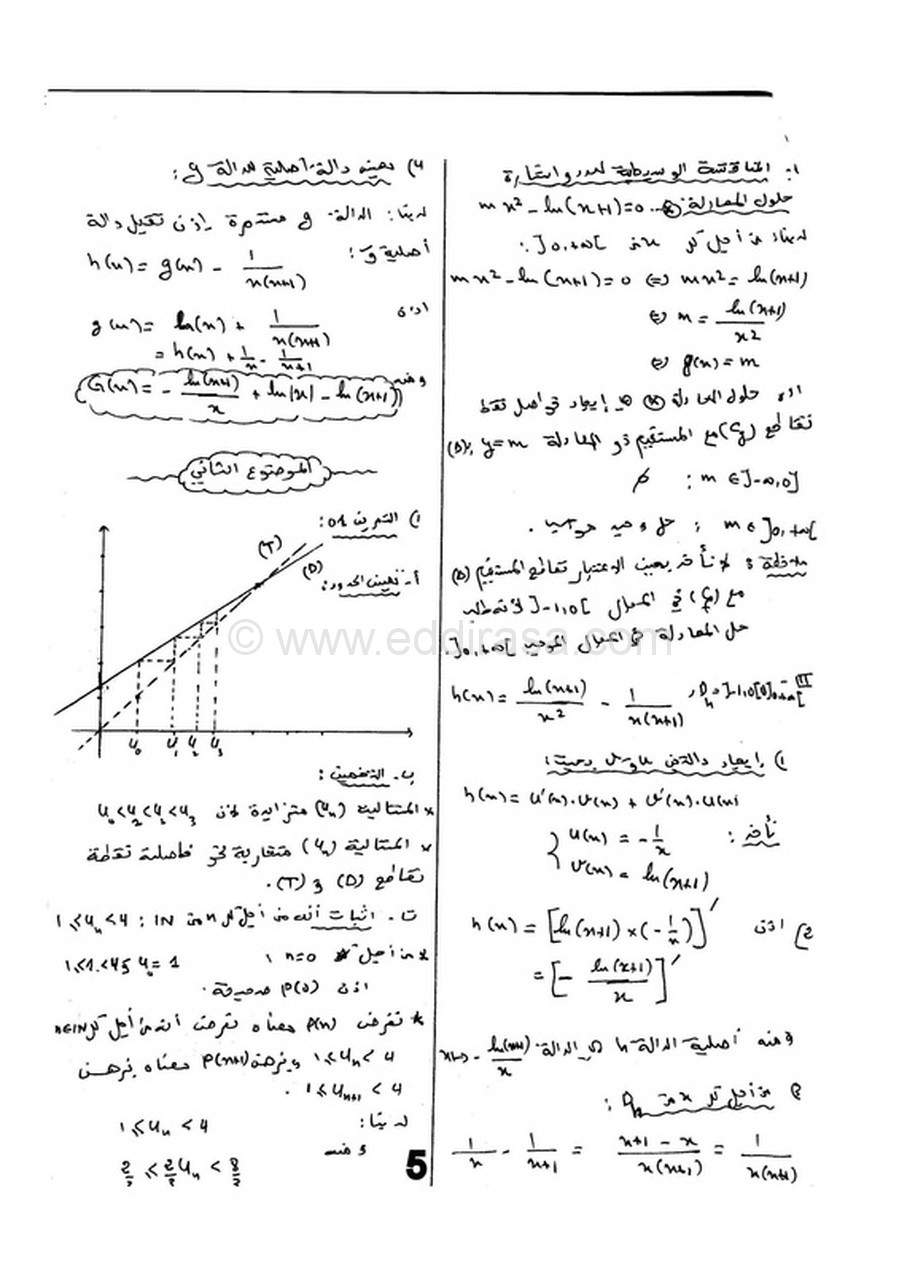 المناقشة الوسيطية لعدد و إشارة
حلول المعادلة: mx² - ln(x+1) = 0
لدينا: من أجل كل x من ]0,+∞[:
mx² - ln(x+1) = 0 ⇔ mx² = ln(x+1)
⇔ m = ln(x+1)/x²
⇔ g(x) = m
اذن حلول المعادلة هي إيجاد فواصل نقط
تقاطع (Cg) مع المستقيم ذو المعادلة y=m (D):
m ∈ ]-∞,0] : ∅
m ∈ ]0,+∞[ : حل وحيد موجب.
ملاحظة: لا نأخذ بعين الاعتبار تقاطع المستقيم (D)
مع (Cg) في المجال ]-1,0[ لأنه طلب
حل المعادلة في المجال الموجب ]0,+∞[.
III h(x) = ln(x+1)/x² - 1/x(x+1) , Dh = ]-1,0[∪]0,+∞[
1) إيجاد دالتين u و v بحيث:
h(x) = u'(x).v(x) + v'(x).u(x)
نأخذ: { u(x) = -1/x
v(x) = ln(x+1)
2) اذن h(x) = [ln(x+1) × (-1/x)]'
= [- ln(x+1)/x]'
ومنه أصلية الدالة h هي الدالة x ↦ - ln(x+1)/x
3 من أجل كل x من Dh:
1/x - 1/x+1 = x+1-x/x(x+1) = 1/x(x+1)
4) تعيين دالة أصلية للدالة g:
لدينا: الدالة g مستمرة إذن تقبل دالة
أصلية G:
h(x) = g(x) - 1/x(x+1)
اذن g(x) = ln(x) + 1/x(x+1)
= h(x) + 1/x - 1/x+1
ومنه G(x) = - ln(x+1)/x + ln|x| - ln(x+1)
الموضوع الثاني
1) التمرين 01:
أ- تعيين الحدود:
(T)
(D)
u₀ u₁ u₂ u₃
ب- التخمين:
* المتتالية (uₙ) متزايدة لأن u₀<u₂<u₁<u₃
* المتتالية (uₙ) متقاربة نحو فاصلة نقطة
تقاطع (D) و (T).
ت- اثبات أنه من أجل كل n من IN : 1 ≤ uₙ < 4
* من أجل n=0 ، u₀ = 1 و 1 ≤ 1 < 4
اذن P(0) صحيحة.
* نفرض P(n) معناه نفرض أنه من أجل كل n∈IN
1 ≤ uₙ < 4 و نبرهن P(n+1) معناه نبرهن
1 ≤ uₙ₊₁ < 4 .
لدينا: 1 ≤ uₙ < 4
ومنه 2/3 ≤ 2/3 uₙ < 8/3
5
© www.eddirasa.com